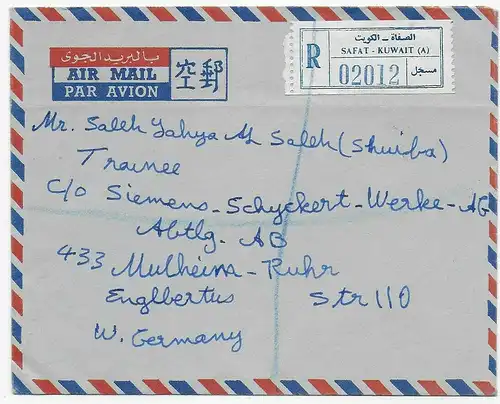 بالبريد الجوى
AIR MAIL
PAR AVION
空郵
R
الصفاة - الكويت
SAFAT - KUWAIT (A)
02012
مسجل
Mr. Saleh Yahya M Saleh (Shuiba)
Trainee
C/o Siemens-Schyckert-Werke-AG
Abtlg. AB
433 Mulheim-Ruhr
Englbertus Str 110
W. Germany